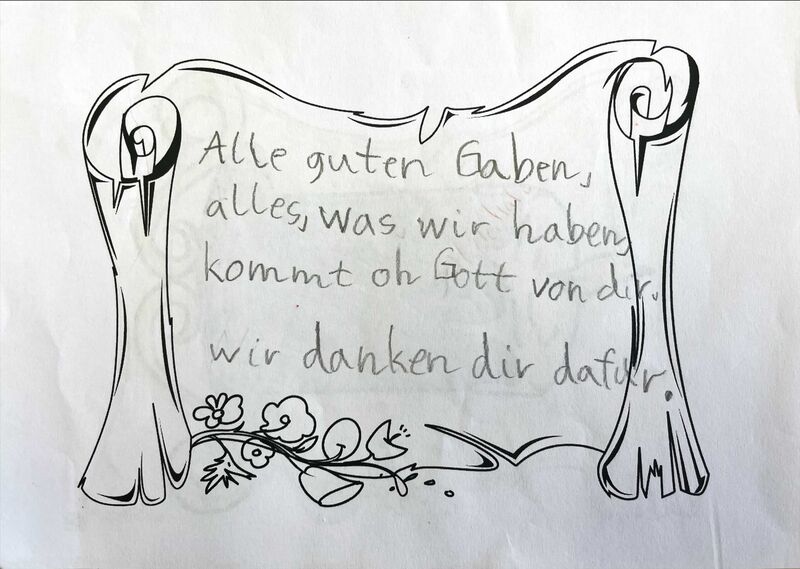 Alle guten Gaben,
alles, was wir haben,
kommt oh Gott von dir.
wir danken dir dafur.